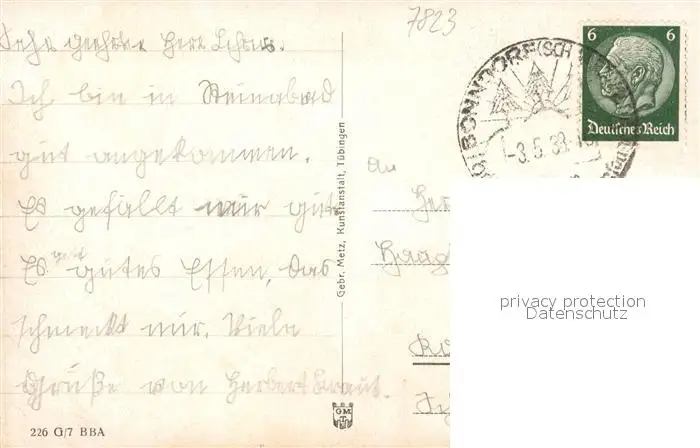 7823
Sehr geehrter Herr
Ich bin in Steinabad
gut angekommen.
Es gefällt mir gut
Es gibt gutes Essen, das
schmeckt mir. Viele
Grüße von Herbert Kraut.
226 G/7 BBA
Gebr. Metz, Kunstanstalt, Tübingen
GM
BONNDORF (SCH
-3.5.39
6 6
Deutsches Reich
An
privacy protection
Datenschutz